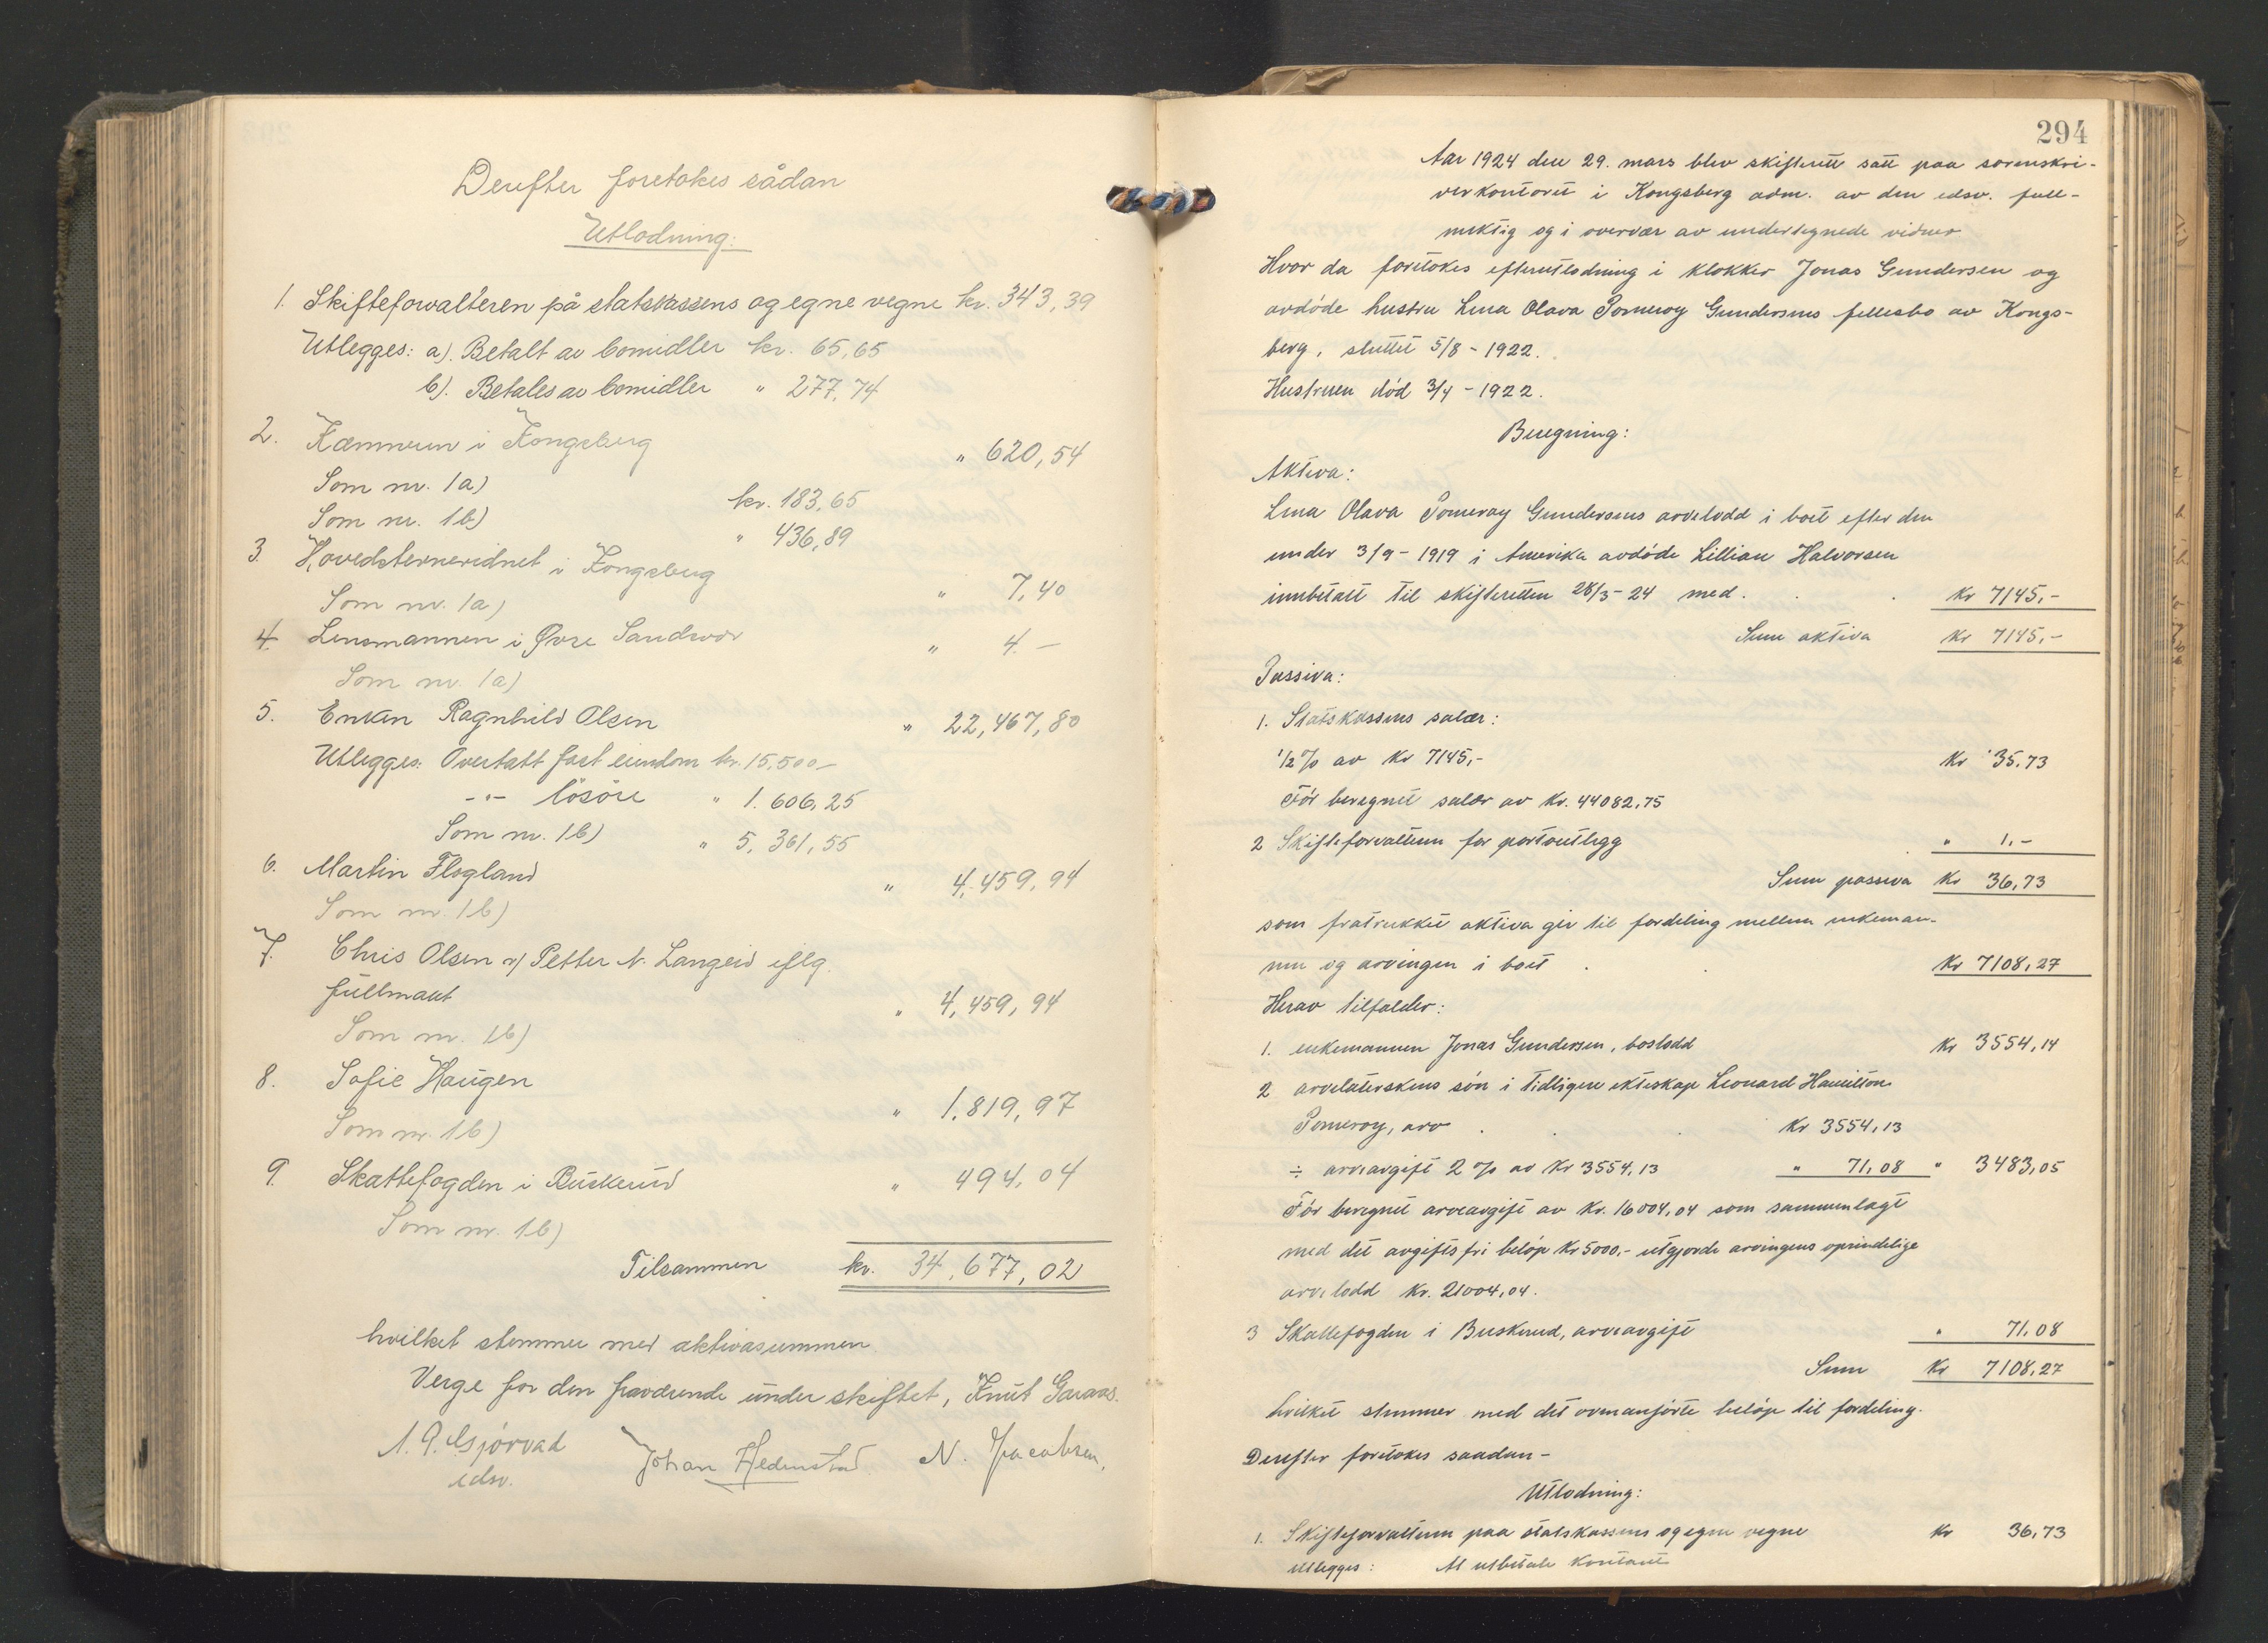 Derefter foretokes sådan
Utlodning:
1. Skifteforvalteren på statskassens og egne vegne kr. 343,39
Utlegges: a). Betalt av bomidler kr. 65,65
b). Betales av bomidler " 277,74
2. Kæmneren i Kongsberg " 620,54
Som nr. 1a) kr. 183,65
Som nr. 1b) " 436,89
3. i Kongsberg " 7,40
Som nr. 1a)
4. Lensmannen i Øvre Sandsvær " 4.-
Som nr. 1a)
5. Enken Ragnhild Olsen " 22,467,80
Utlegges: Overtatt fast eiendom kr. 15,500-
-"- løsøre " 1.606,25
Som nr. 1b) " 5,361,55
6. Martin Flogland " 4,459,94
Som nr. 1b)
7. Chris Olsen v/ Petter N. Langeid iflg.
fullmakt " 4,459,94
Som nr. 1b)
8. Sofie Haugen " 1.819,97
Som nr. 1b)
9. Skattefogden i Buskerud " 494,04
Som nr. 1b)
Tilsammen kr. 34,677,02
hvilket stemmer med aktivasummen.
Verge for den fraværende under skiftet, Knut Garaas.
edsv. Johan Hedenstad. N. Jacobsen.
294
Aar 1924 den 29. mars blev skifterett satt paa sorenskri-
verkontoret i Kongsberg adm. av den edsv. full-
mektig og i overvær av undertegnede vidner
Hvor da foretokes efterutlodning i klokker Jonas Gundersen og
avdøde hustru Lina Olava Pomeroy Gundersens fellesbo av Kongs-
berg, sluttet 5/8 - 1922.
Hustruen død 3/4 - 1922.
Beregning:
Aktiva:
Lina Olava Pomeroy Gundersens arvelodd i boet efter den
under 3/9 - 1919 i Amerika avdøde Lillian Halvorsen
innbetalt til skifteretten 28/3 - 24 med . . kr 7145,-
Sum aktiva kr 7145,-
Passiva:
1. Statskassens salær:
1/2 % av kr 7145,- kr 35,73
Før beregnet salær av kr. 44082,75
2 Skifteforvalteren for portoutlegg " 1,-
Sum passiva kr 36,73
som fratrukket aktiva gir til fordeling mellem enkeman-
nen og arvingen i boet . . kr 7108,27
Herav tilfalder:
1. enkemannen Jonas Gundersen, boslodd kr 3554,14
2 arvelaterskens søn i tidligere ekteskap Leonard Hamilton
Pomeroy, arv . . . kr 3554,13
÷ arveavgift 2 % av kr 3554,13 " 71,08 " 3483,05
Før beregnet arveavgift av kr. 16004,04 som sammenlagt
med det avgiftsfri beløp kr 5000,- utgjorde arvingens oprindelige
arvelodd kr. 21004,04.
3 Skattefogden i Buskerud, arveavgift " 71,08
Sum kr 7108,27
hvilket stemmer med det ovenanførte beløp til fordeling.
Derefter foretokes saadan -
Utlodning:
1. Skifteforvalteren paa statskassens og egne vegne kr 36,73
utlegges: At utbetale kontant